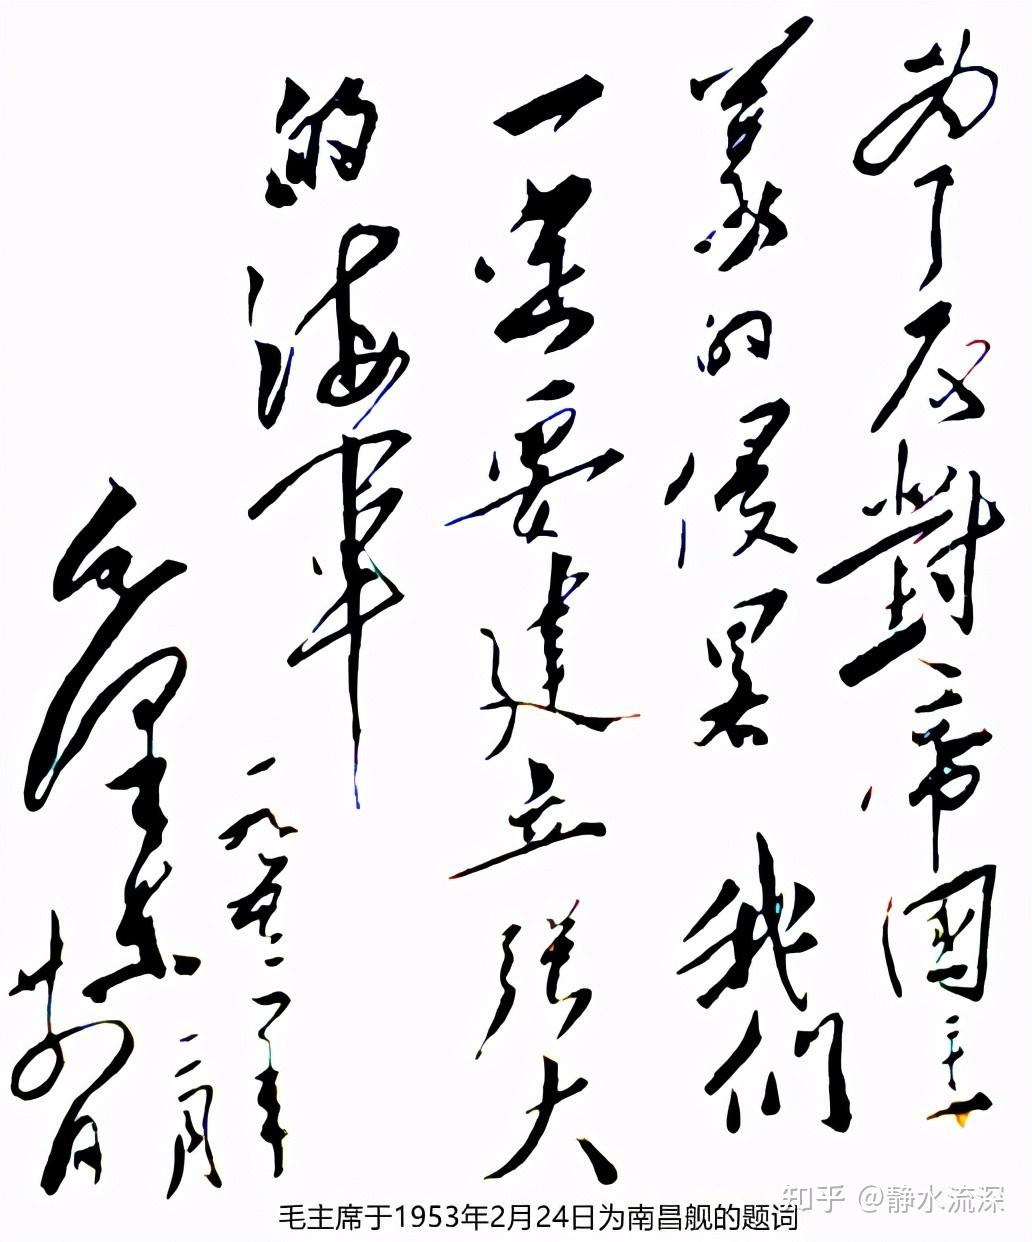 为了反對帝國主
義的侵畧我们
一定要建立强大
的海军
一九五三年
二月
毛泽东
廿四日
毛主席于1953年2月24日为南昌舰的题词
知乎 @静水流深